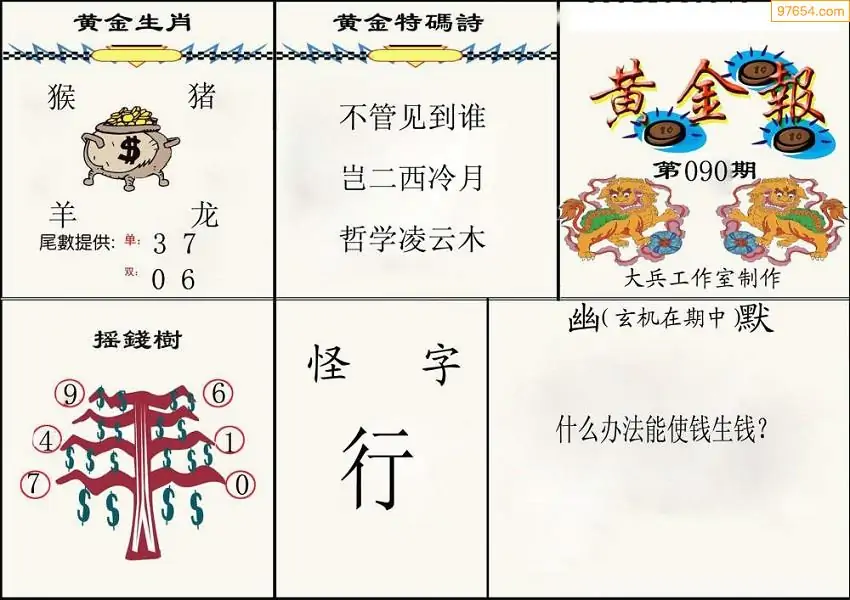 97654.com
黄金生肖
猴 猪
$
羊 龙
尾數提供: 单: 3 7
双: 0 6
黄金特碼詩
不管见到谁
岂二西冷月
哲学凌云木
黄金報
10
10
10
第090期
大兵工作室制作
摇錢樹
9 6
4 1
7 0
怪 字
行
幽(玄机在期中)默
什么办法能使钱生钱?